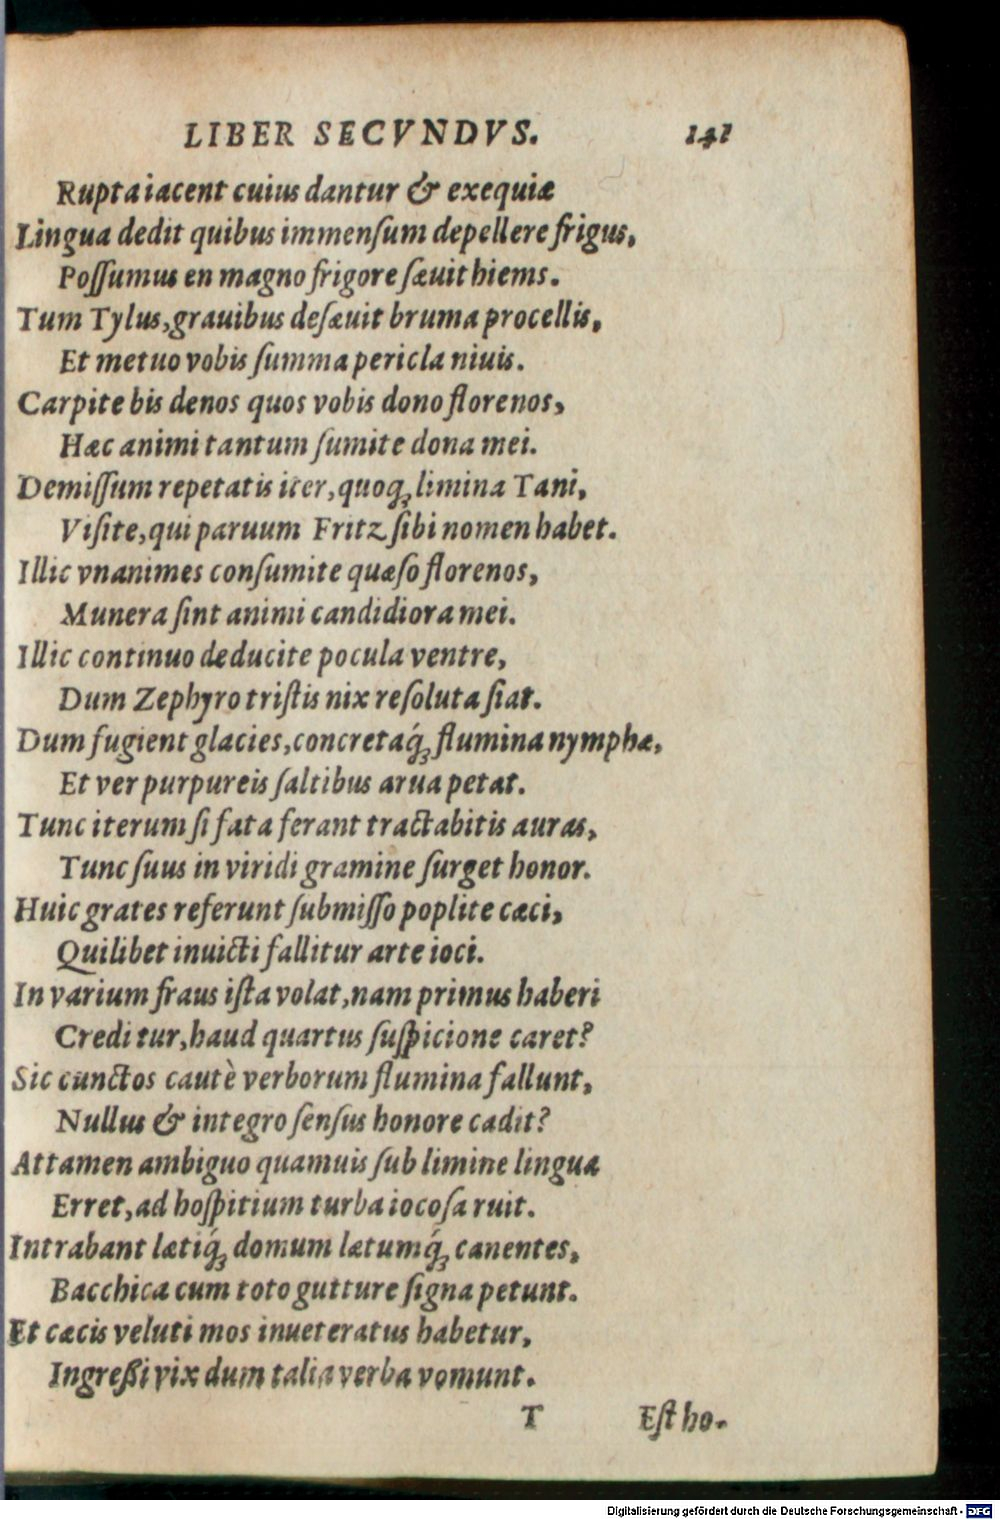 LIBER SECVNDVS. 141
Rupta iacent cuius dantur & exequiæ
Lingua dedit quibus immenſum depellere frigus,
Poſſumus en magno frigore ſæuit hiems.
Tum Tylus, grauibus deſæuit bruma procellis,
Et metuo vobis ſumma pericla niuis.
Carpite bis denos quos vobis dono florenos,
Hæc animi tantum ſumite dona mei.
Demiſſum repetatis iter, quoq; limina Tani,
Viſite, qui paruum Fritz ſibi nomen habet.
Illic vnanimes conſumite quæſo florenos,
Munera ſint animi candidiora mei.
Illic continuo deducite pocula ventre,
Dum Zephyro triſtis nix reſoluta fiat.
Dum fugient glacies, concretaq́; flumina nymphæ,
Et ver purpureis ſaltibus arua petat.
Tunc iterum ſi fata ferant tractabitis auras,
Tunc ſuus in viridi gramine ſurget honor.
Huic grates referunt ſubmiſſo poplite cæci,
Quilibet inuicti fallitur arte ioci.
In varium fraus iſta volat, nam primus haberi
Creditur, haud quartus ſuſpicione caret?
Sic cunctos cautè verborum flumina fallunt,
Nullus & integro ſenſus honore cadit?
Attamen ambiguo quamuis ſub limine lingua
Erret, ad hoſpitium turba iocoſa ruit.
Intrabant lætiq́; domum lætumq́; canentes,
Bacchica cum toto gutture ſigna petunt.
Et cæcis veluti mos inueteratus habetur,
Ingreßi vix dum talia verba vomunt.
T Eſt ho-
Digitalisierung gefördert durch die Deutsche Forschungsgemeinschaft - DFG